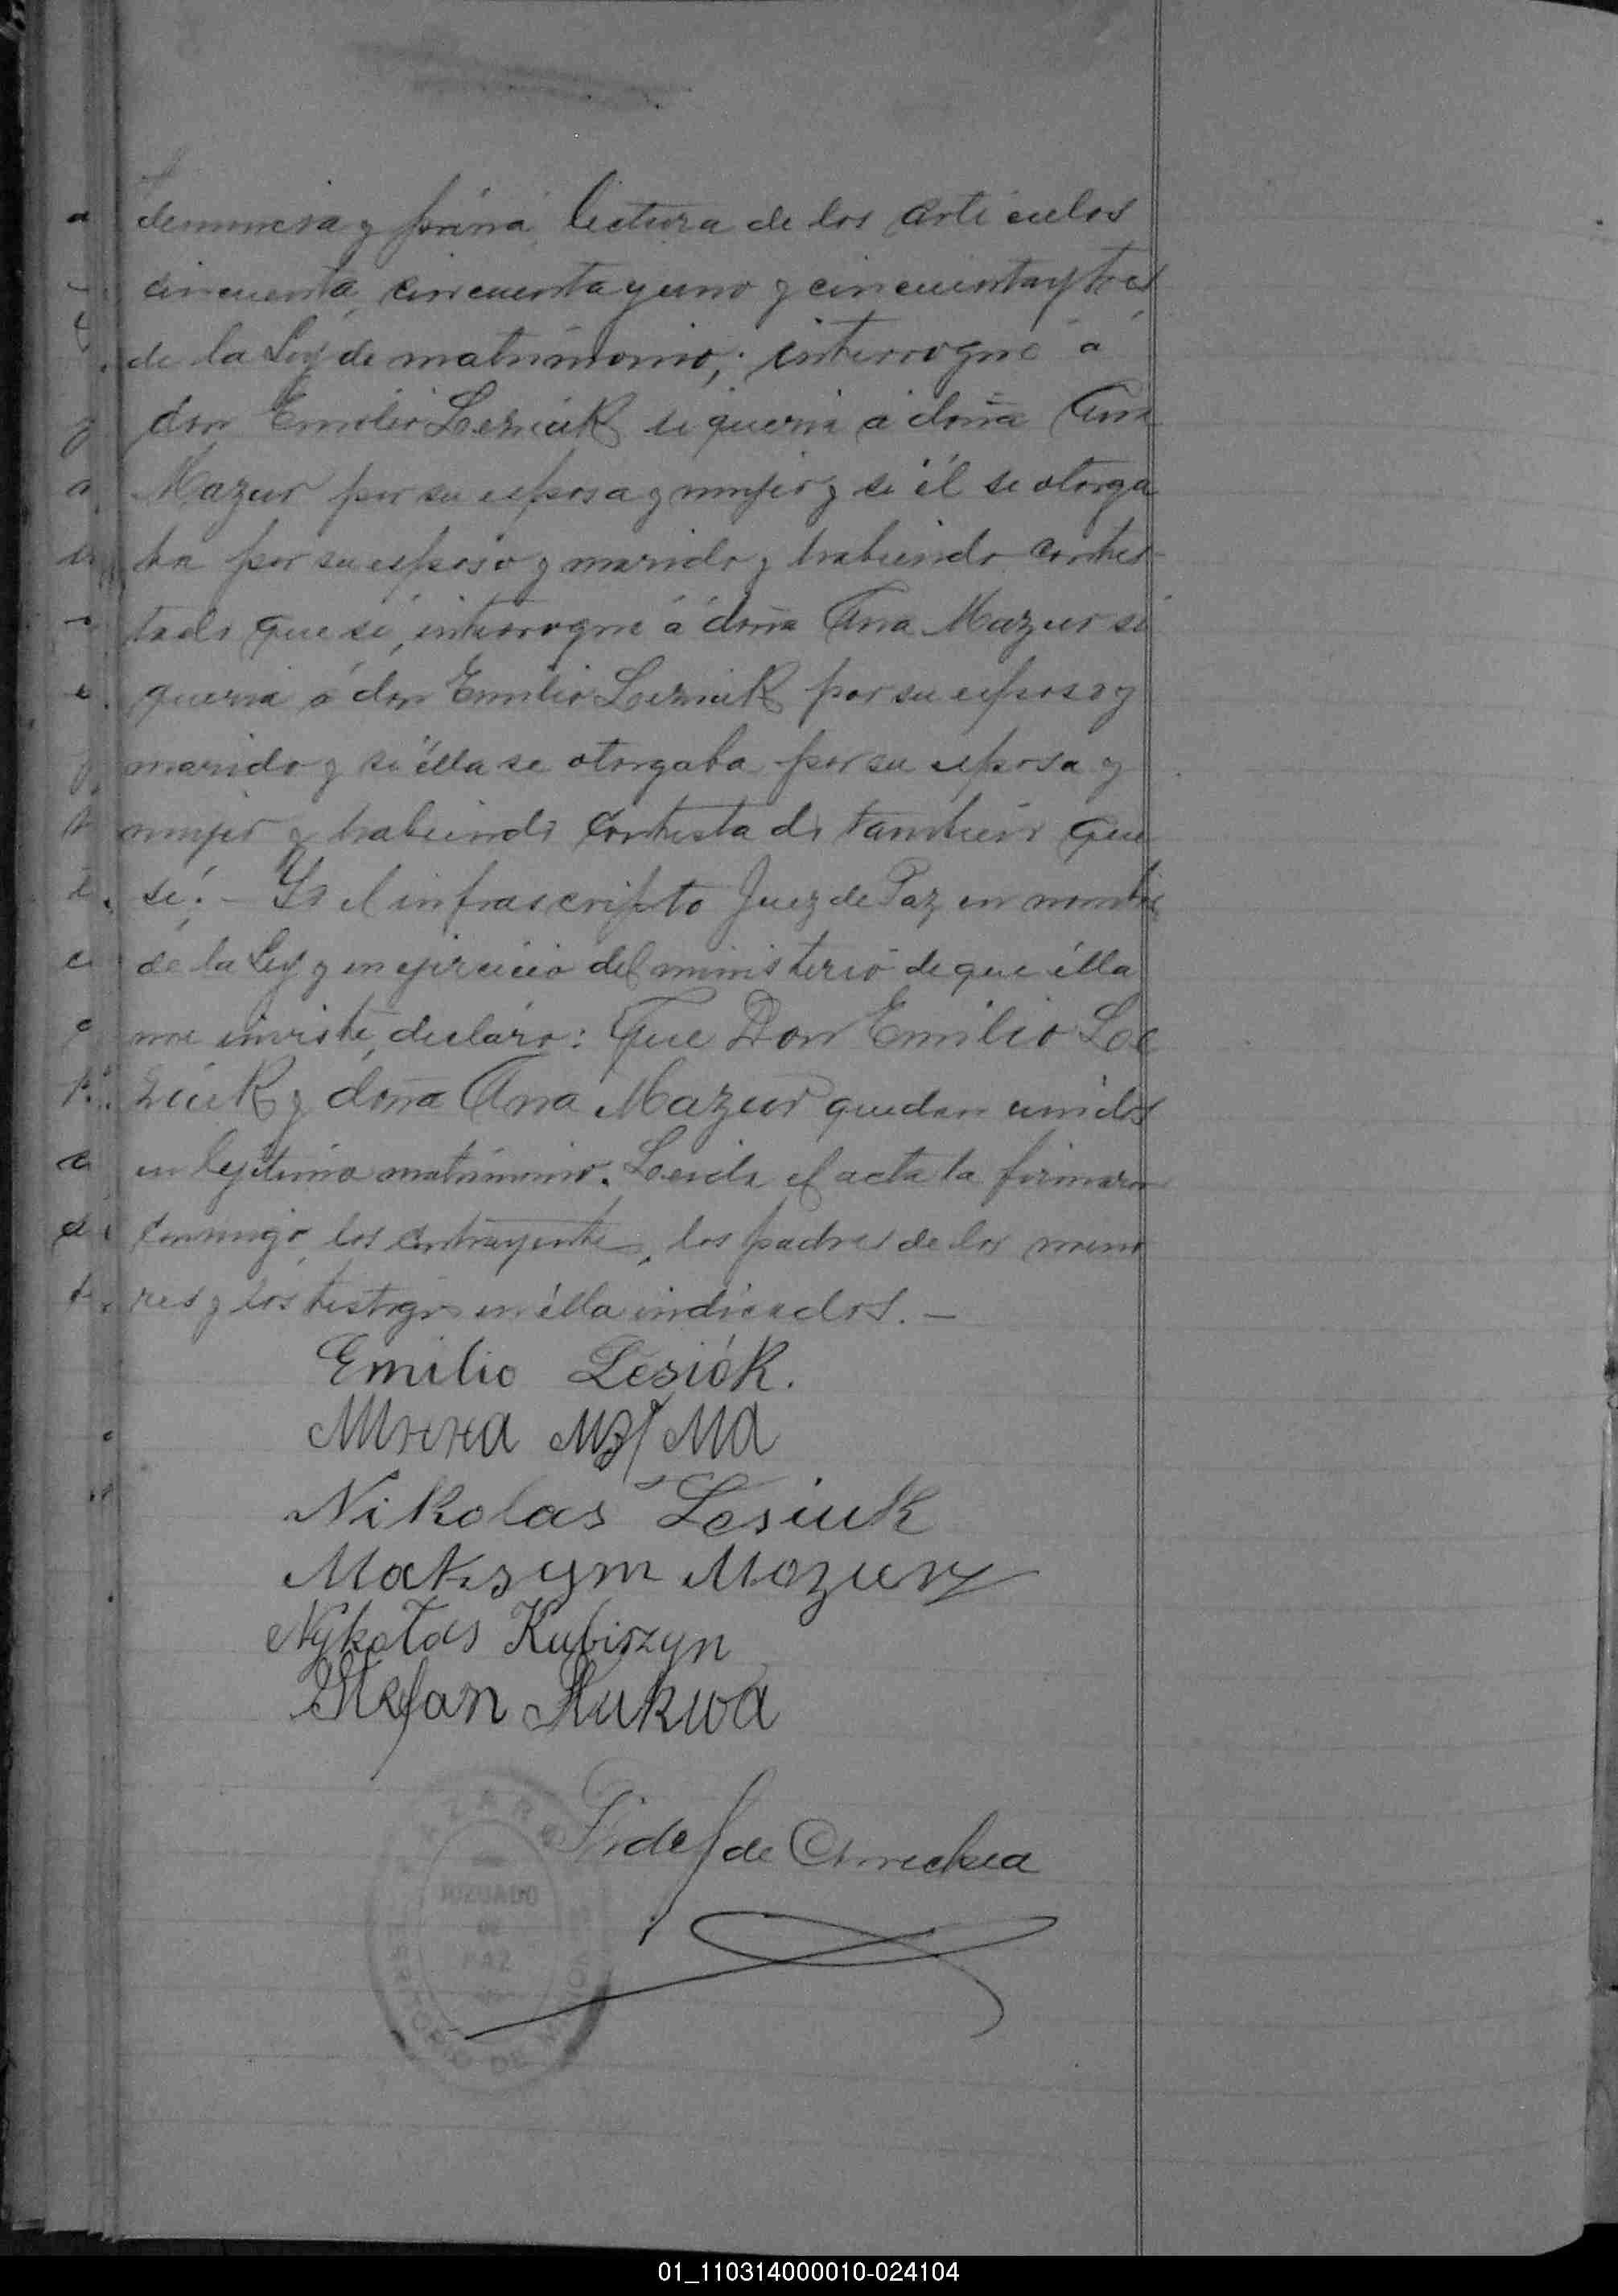 denuncia y prévia lectura de los articulos
cincuenta, cincuenta y uno y cincuenta y tres
de la Ley de matrimonio; interrogué á
don Emilio Lezciuk si queria á doña Ana
Mazur por su esposa y mujer y si él se otorga
ba por su esposo y marido y habiendo contes-
tado que sí, interrogué á doña Ana Mazur si
queria á don Emilio Lezciuk por su esposo y
marido y si élla se otorgaba por su esposa y
mujer y habiendo contestado tambien que
sí. - Yo el infrascripto Juez de Paz en nombre
de la Ley y en ejercicio del ministerio de que élla
me inviste, declaro: Que Don Emilio Le
ziuk y doña Ana Mazur quedan unidos
en lejítimo matrimonio. Leida el acta la firmaron
conmigo los contrayentes, los padres de los meno
res y los testigos en élla indicados. -
Emilio Lesiók.
Nikolas Lesiuk
Maksym Mozury
Nykołas Kubiszyn
Stefan Kukwa
Fidel de Arrechea
JUZGADO
DE
PAZ